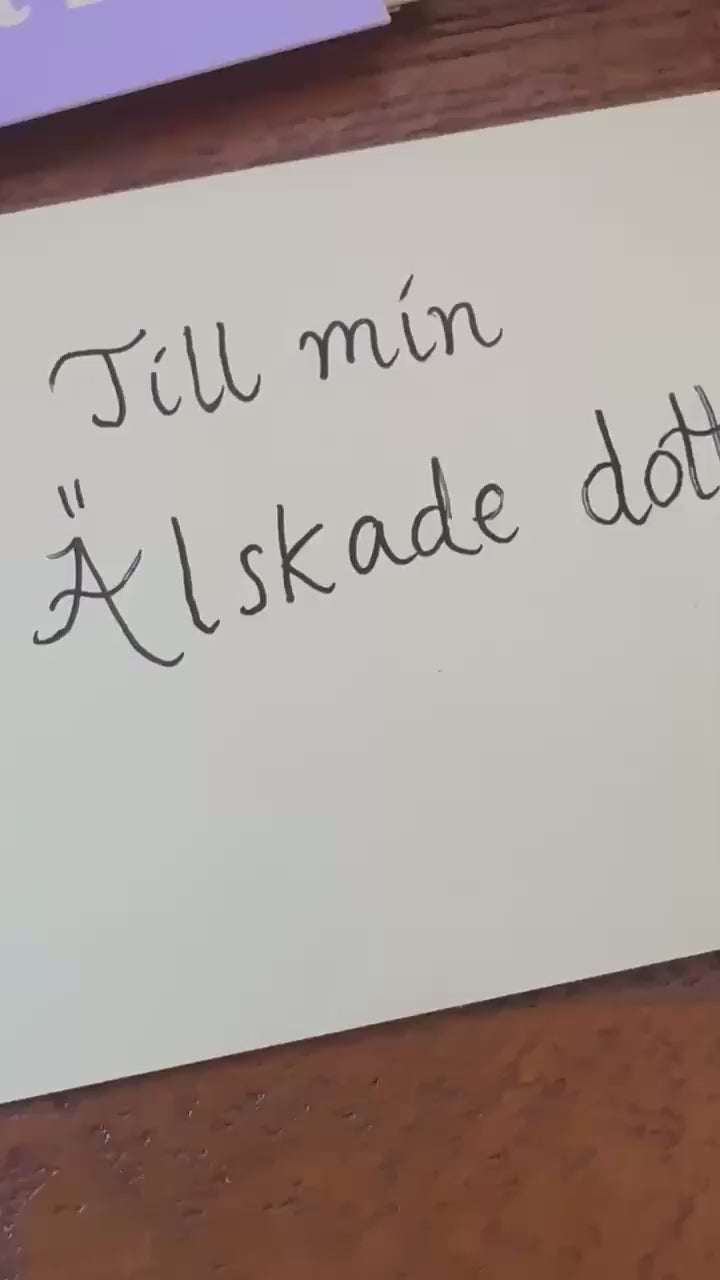 Till min
Älskade dott